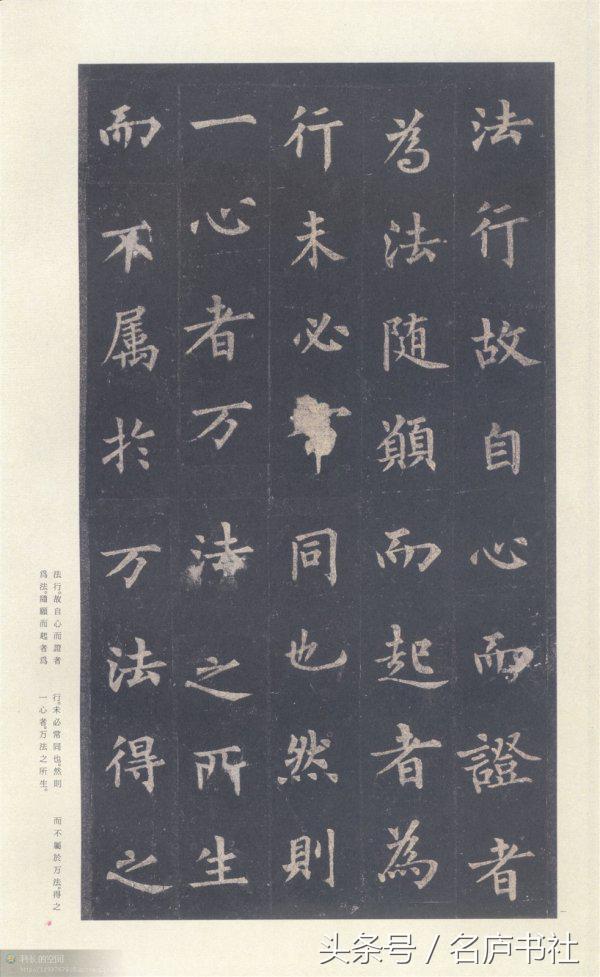 法行故自心而證者
為法随願而起者為
行未必常同也然則
一心者万法之所生
而不属於万法得之
法行。故自心而證者
爲法。隨願而起者爲
行。未必常同也。然則
一心者。万法之所生。
而不屬於万法。得之
科长的空间
头条号 / 名庐书社